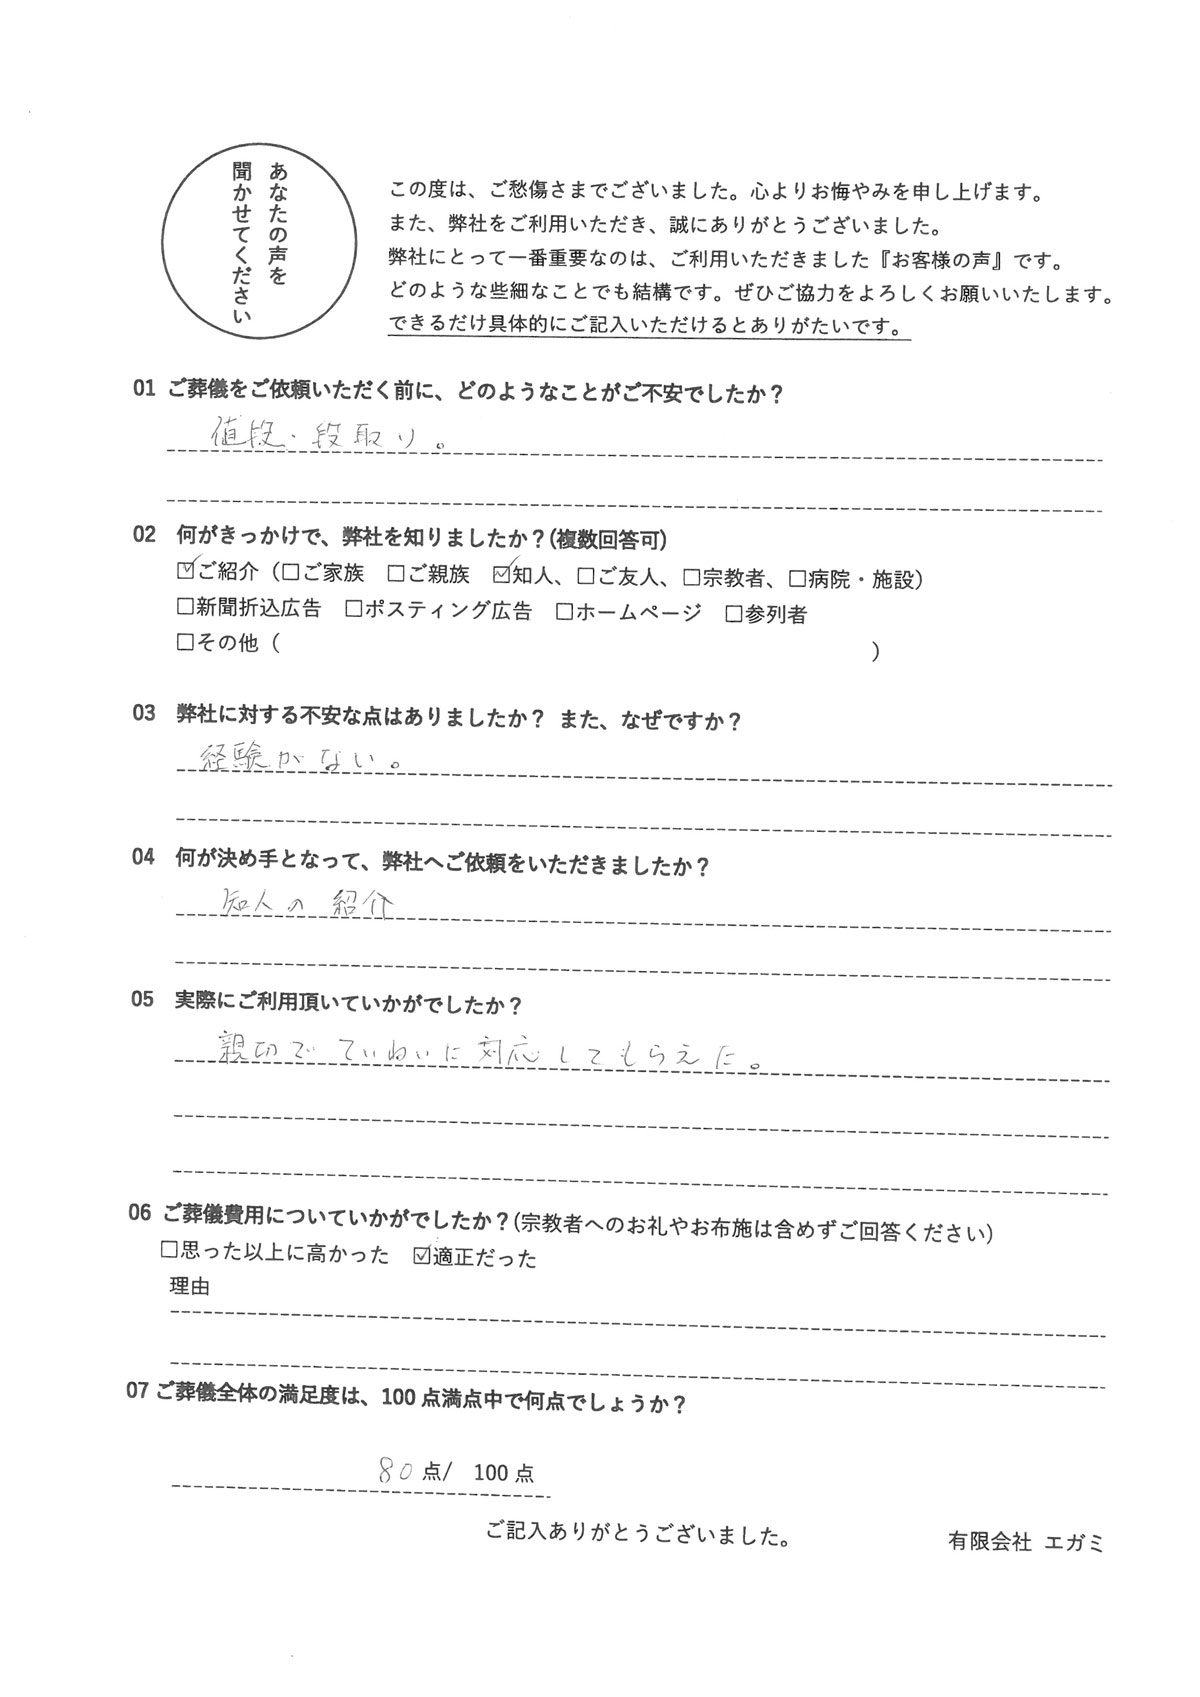 あなたの声を
聞かせてください
この度は、ご愁傷さまでございました。心よりお悔やみを申し上げます。
また、弊社をご利用いただき、誠にありがとうございました。
弊社にとって一番重要なのは、ご利用いただきました『お客様の声』です。
どのような些細なことでも結構です。ぜひご協力をよろしくお願いいたします。
できるだけ具体的にご記入いただけるとありがたいです。
01 ご葬儀をご依頼いただく前に、どのようなことがご不安でしたか？
値段・段取り。
02 何がきっかけで、弊社を知りましたか？(複数回答可)
☑ご紹介（□ご家族 □ご親族 ☑知人、□ご友人、□宗教者、□病院・施設）
□新聞折込広告 □ポスティング広告 □ホームページ □参列者
□その他（ ）
03 弊社に対する不安な点はありましたか？ また、なぜですか？
経験がない。
04 何が決め手となって、弊社へご依頼をいただきましたか？
知人の紹介
05 実際にご利用頂いていかがでしたか？
親切でていねいに対応してもらえた。
06 ご葬儀費用についていかがでしたか？(宗教者へのお礼やお布施は含めずご回答ください)
□思った以上に高かった ☑適正だった
理由
07 ご葬儀全体の満足度は、100 点満点中で何点でしょうか？
80 点/ 100 点
ご記入ありがとうございました。
有限会社 エガミ